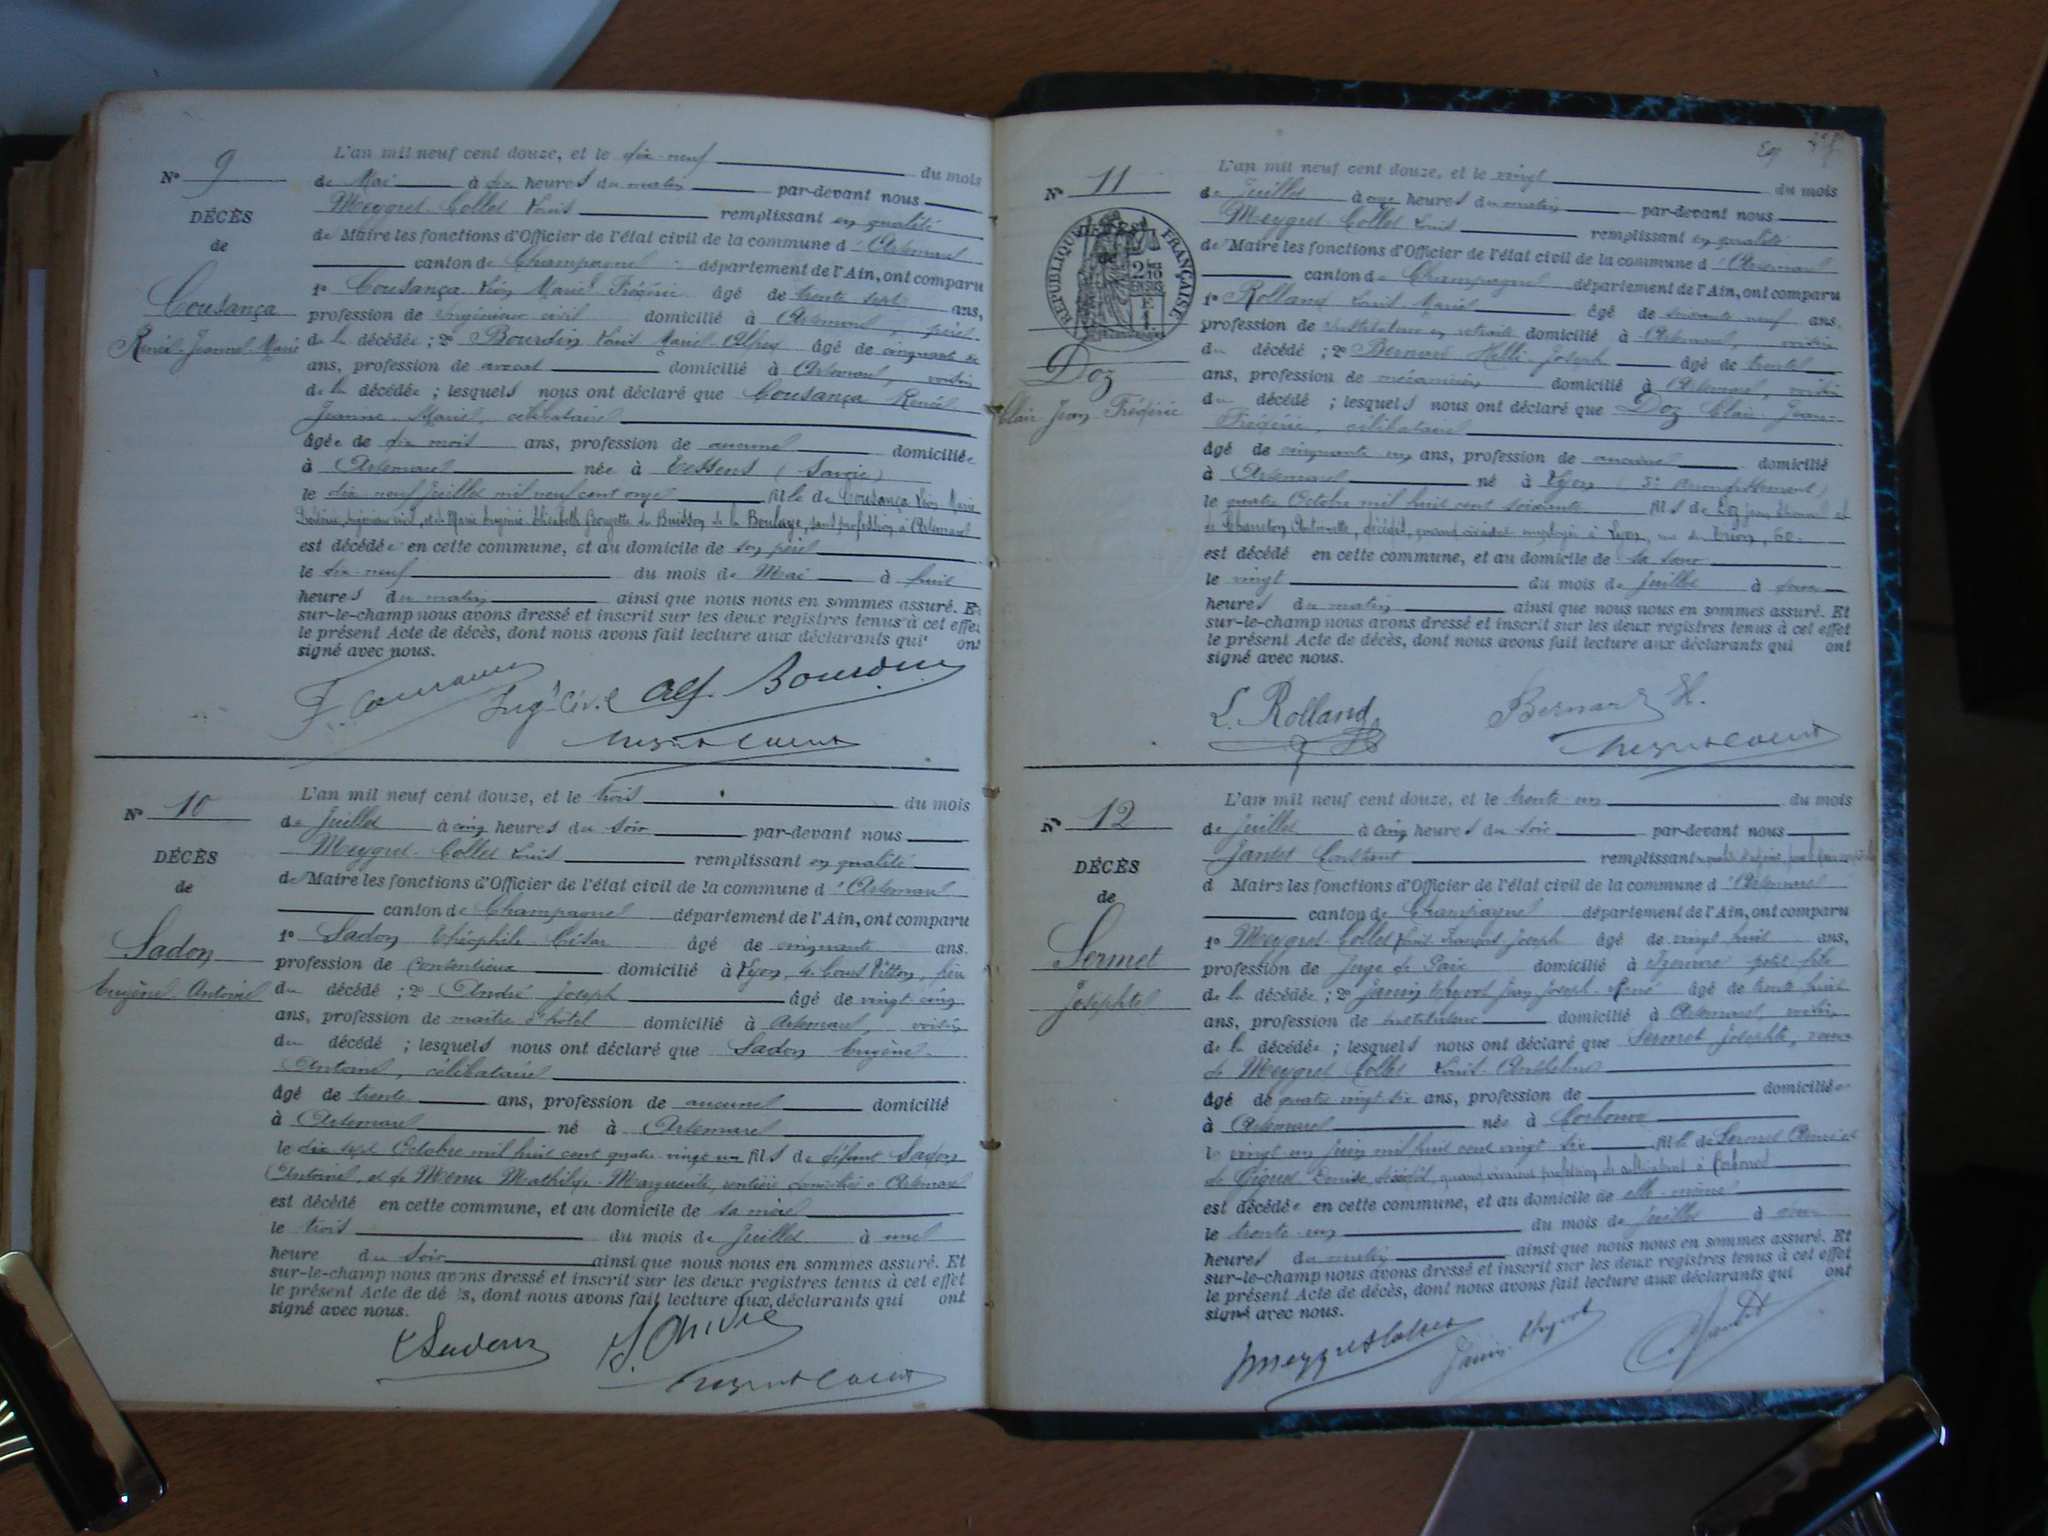 L'an mil neuf cent douze, et le dix-neuf du mois
N° 9
de Mai à dix heures du matin par-devant nous
DÉCÈS
Meygret-Collet Louis remplissant en qualité
de
de Maire les fonctions d'Officier de l'état civil de la commune d'Artemare
canton de Champagne département de l'Ain, ont comparu
Cousança
1° Cousança Léon Marie Frédéric âgé de trente sept ans,
Renée-Jeanne-Marie
profession de ingénieur civil domicilié à Artemare, père
de la décédée ; 2° Bourdin Louis Marie Alfred âgé de cinquante
ans, profession de avocat domicilié à Artemare, voisin
de la décédée ; lesquels nous ont déclaré que Cousança Renée
Jeanne-Marie, célibataire
âgée de dix mois ans, profession de aucune domiciliée
à Artemare née à Tessens (Savoie)
le dix neuf Juillet mil neuf cent onze fille de Cousança Léon Marie
Frédéric, ingénieur civil, et de Marie Eugénie Elisabeth Georgette du Buisson de la Boulaye, sans profession à Artemare
est décédée en cette commune, et au domicile de son père
le dix-neuf du mois de Mai à huit
heures du matin ainsi que nous nous en sommes assuré. Et
sur-le-champ nous avons dressé et inscrit sur les deux registres tenus à cet effet
le présent Acte de décès, dont nous avons fait lecture aux déclarants qui ont
signé avec nous.
Ing. Civil Alf. Bourdin
L'an mil neuf cent douze, et le trois du mois
N° 10
de Juillet à cinq heures du soir par-devant nous
DÉCÈS
Meygret-Collet Louis remplissant en qualité
de
de Maire les fonctions d'Officier de l'état civil de la commune d'Artemare
canton de Champagne département de l'Ain, ont comparu
Sadon
1° Sadon Théophile César âgé de cinquante ans.
Eugène-Antoine
profession de contentieux domicilié à Lyon, Cours Vitton,
du décédé ; 2° André Joseph âgé de vingt cinq
ans, profession de maître d'hôtel domicilié à Artemare, voisin
du décédé ; lesquels nous ont déclaré que Sadon Eugène
Antoine, célibataire
âgé de trente ans, profession de aucune domicilié
à Artemare né à Artemare
le dix sept Octobre mil huit cent quatre-vingt un fils de défunt Sadon
Antoine, et de Menu Mathilde-Marguerite, rentière domiciliée à Artemare
est décédé en cette commune, et au domicile de sa mère
le trois du mois de Juillet à une
heure du soir ainsi que nous nous en sommes assuré. Et
sur-le-champ nous avons dressé et inscrit sur les deux registres tenus à cet effet
le présent Acte de décès, dont nous avons fait lecture aux déclarants qui ont
signé avec nous.
L'an mil neuf cent douze, et le vingt du mois
N° 11
de Juillet à onze heures du matin par-devant nous
Meygret-Collet Louis remplissant en qualité
RÉPUBLIQUE FRANÇAISE
de Maire les fonctions d'Officier de l'état civil de la commune d'Artemare
canton de Champagne département de l'Ain, ont comparu
1° Rolland Louis Marie âgé de soixante neuf ans,
profession de instituteur en retraite domicilié à Artemare, voisin
Doz
du décédé ; 2° Bernard Joseph âgé de trente
Clair Jean Frédéric
ans, profession de mécanicien domicilié à Artemare, voisin
du décédé ; lesquels nous ont déclaré que Doz Clair Jean-
Frédéric, célibataire
âgé de cinquante un ans, profession de aucune domicilié
à Artemare né à Lyon (5e arrondissement)
le quatre Octobre mil huit cent soixante fils de Doz Jean et
de Charreton Antoinette, décédés, quand vivaient employés à Lyon, rue de Trion, 60.
est décédé en cette commune, et au domicile de sa sœur
le vingt du mois de Juillet à
heures du matin ainsi que nous nous en sommes assuré. Et
sur-le-champ nous avons dressé et inscrit sur les deux registres tenus à cet effet
le présent Acte de décès, dont nous avons fait lecture aux déclarants qui ont
signé avec nous.
L. Rolland Bernard H.
L'an mil neuf cent douze, et le trente-un du mois
N° 12
de Juillet à cinq heures du soir par-devant nous
Jantet Constant remplissant
DÉCÈS
d Maire les fonctions d'Officier de l'état civil de la commune d'Artemare
de
canton de Champagne département de l'Ain, ont comparu
Sermet
1° Meygret-Collet Louis François Joseph âgé de vingt huit ans,
Josephte
profession de Juge de Paix domicilié à petit fils
de la décédée ; 2° Janin Jean Joseph René âgé de trente huit
ans, profession de instituteur domicilié à Artemare, voisin
de la décédée ; lesquels nous ont déclaré que Sermet Josephte, veuve
de Meygret Collet Louis Anthelme
âgée de quatre vingt six ans, profession de domiciliée
à Artemare née à Corbonod
le vingt un Juin mil huit cent vingt six fille de Sermet et
de Denise décédés, quand vivaient profession de cultivateurs à Corbonod
est décédée en cette commune, et au domicile de elle-même
le trente un du mois de Juillet à
heures du matin ainsi que nous nous en sommes assuré. Et
sur-le-champ nous avons dressé et inscrit sur les deux registres tenus à cet effet
le présent Acte de décès, dont nous avons fait lecture aux déclarants qui ont
signé avec nous.